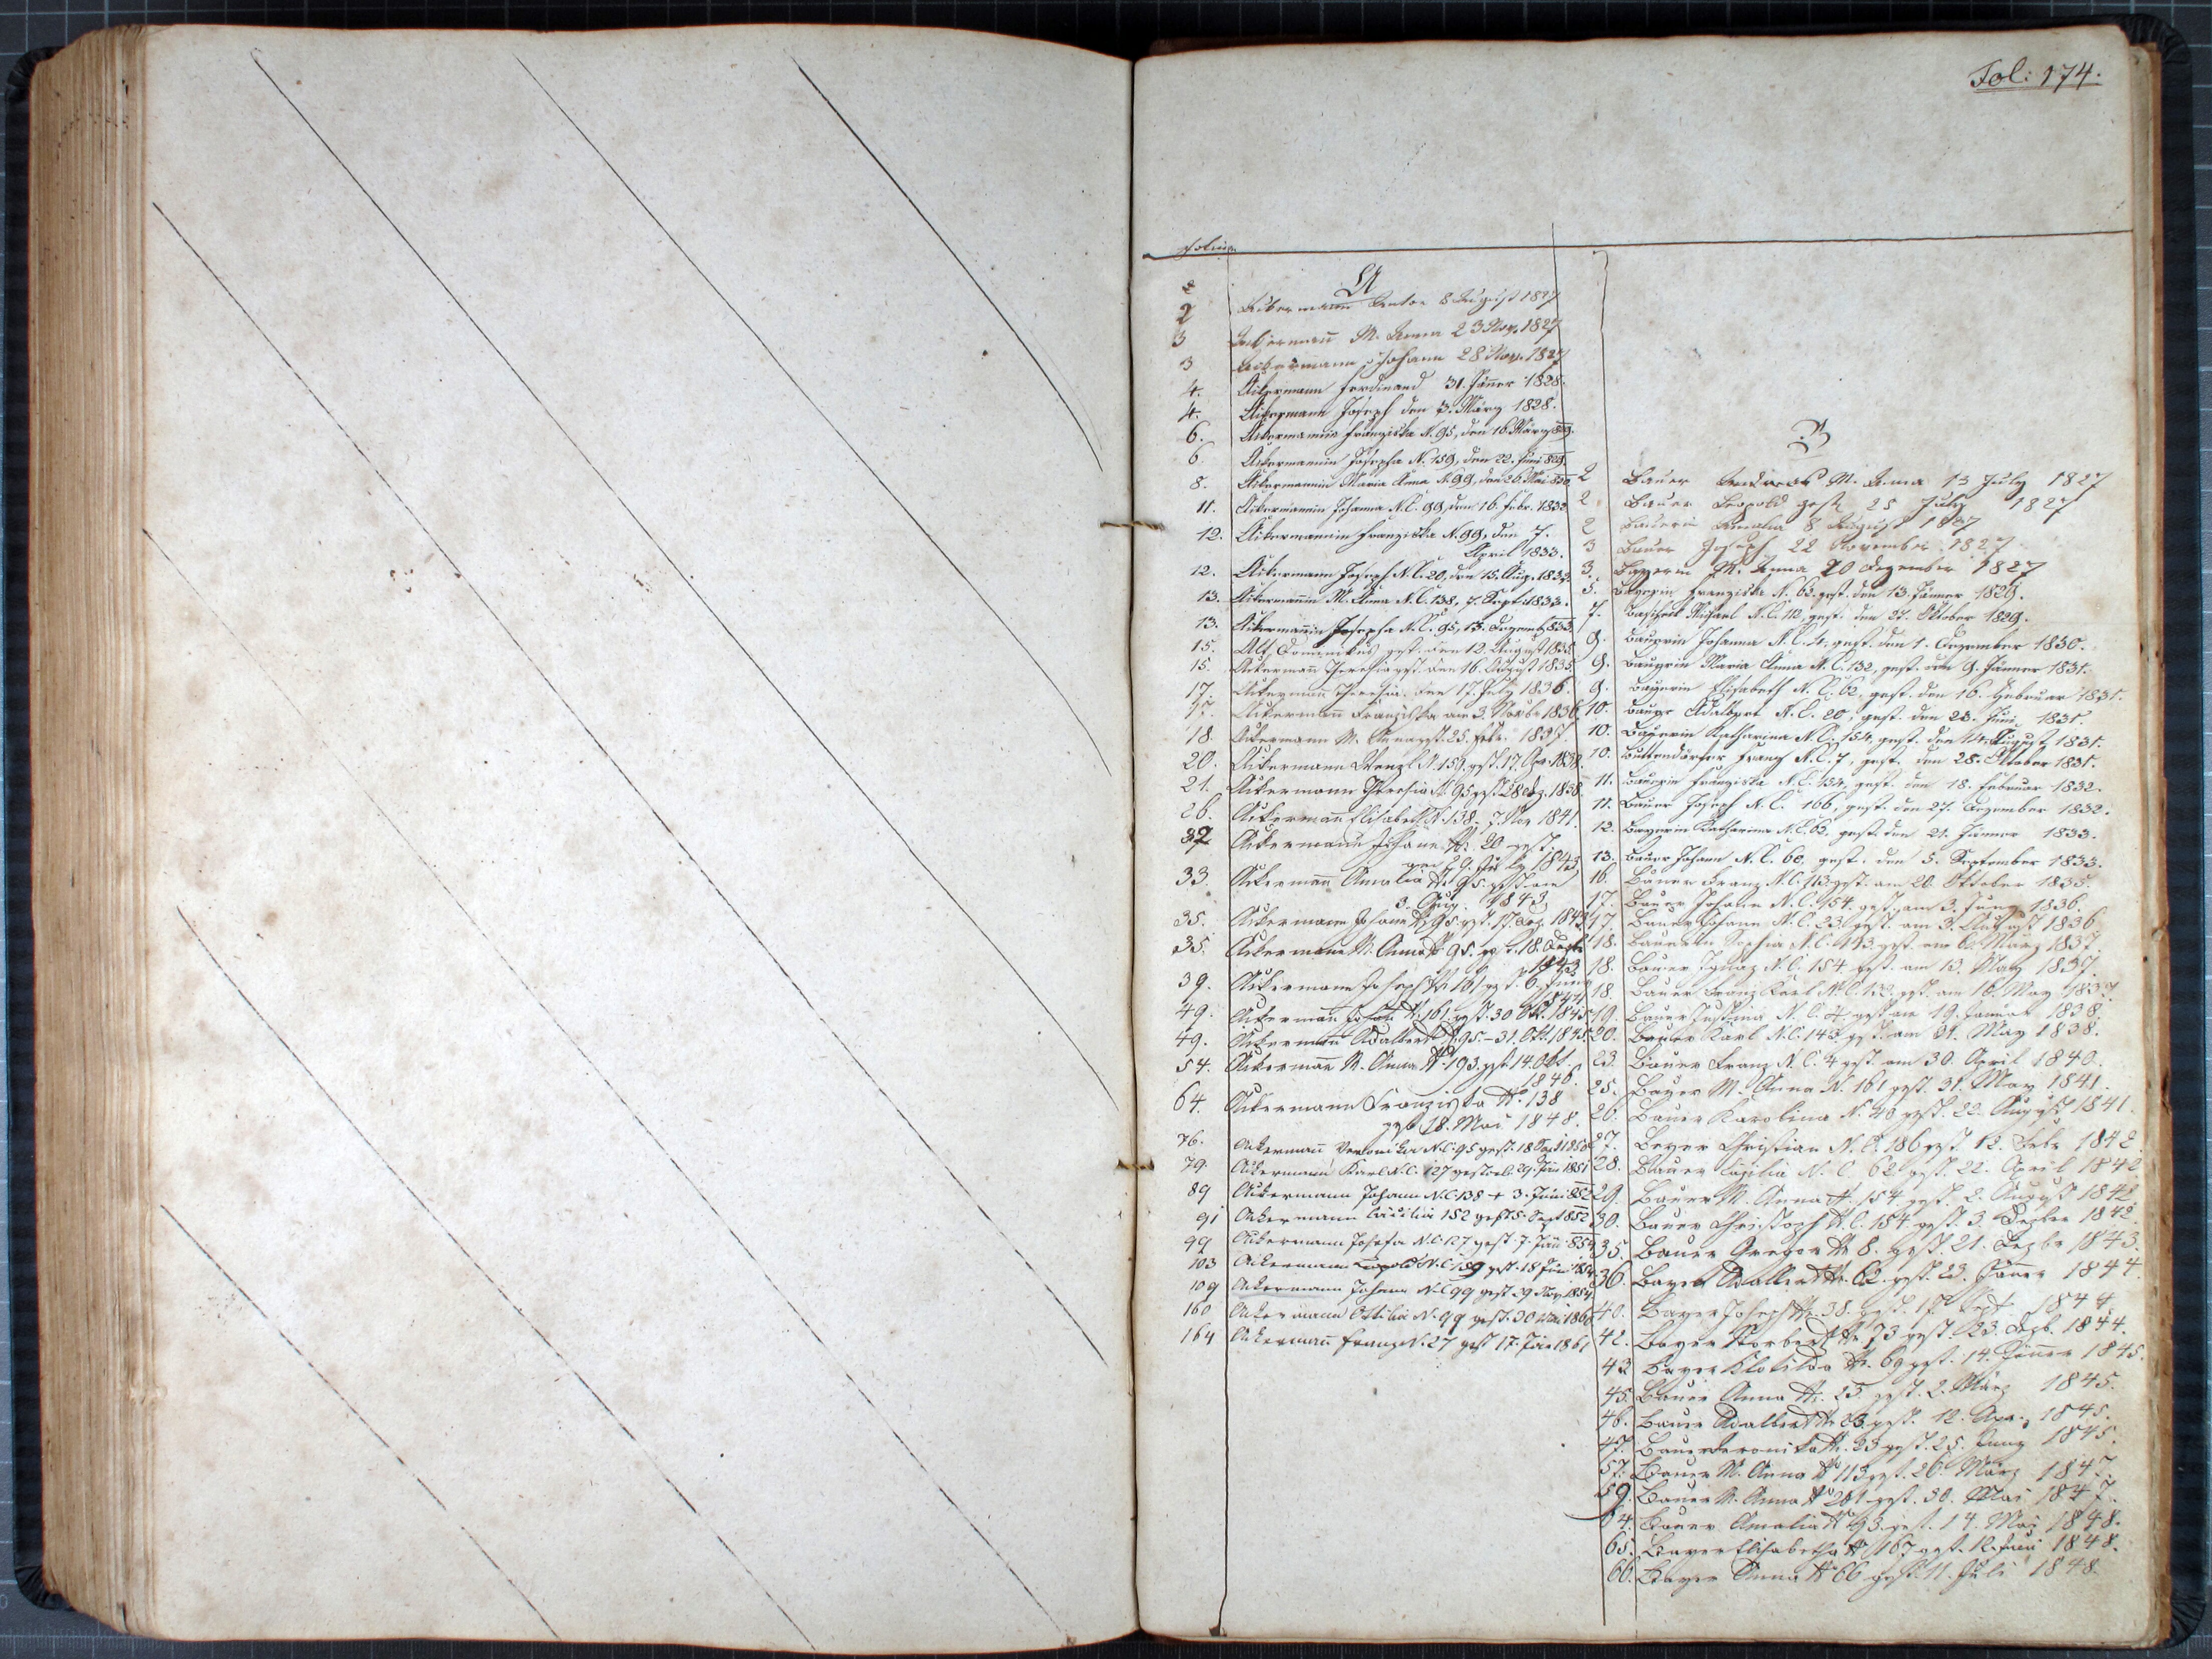 Fol: 174.
Folium
A
2 Ackermann Anton 8 August 1827
3 Ackermann M. Anna 23 Nov. 1827
3 Ackermann Johann 28 Nov. 1827
4. Ackermann Ferdinand 31. Jäner 1828.
4. Ackermann Joseph den 3. März 1828.
6. Ackermannin Franziska N. 95, den 16. März 829.
6 Ackermannin Josepha N. 159, den 22. Juni 829.
8. Ackermannin Maria Anna N. 99, den 26. Mai 830.
11. Ackermannin Johanna N.C. 99, den 16. Febr. 1832
12. Ackermannin Franziska N. 99, den 7.
April 1833.
12. Ackermann Joseph N.C. 20, den 15. Aug. 1832.
13. Ackermannin M. Anna N.C. 138, 7. Sept. 1833.
13. Ackermannin Josepha N.C. 95, 13. Dezemb. 833.
15. Alt Dominikus gest. den 12. August 1835
15. Ackermann Theresia gest. den 16. August 1835
17. Ackermann Theresia den 17. July 1836.
17. Ackermann Franziska am 3. Novbr 1836
18. Ackermann M. Anna gest. 25. Febr. 1837.
20. Ackermann Wenzl N. 159. gest. 17. Apr. 1838.
21. Ackermann Theresia N. 95 gest. 28 1838
26. Ackermann Elisabeth N. 138. 7. Nov 1841.
32 Ackermann Johann N. 20 gest.
den 29. July 1843
33. Ackermann Amalia N. 95. gest. am
3. Aug. 1843
35. Ackermann Johann N. 95. gest. 17. Dez. 1843.
35. Ackermann M. Anna N. 95. gest. 18. Dezbr
1843.
39. Ackermann Joseph N. 161 gest. 6. Juny
1844
49. Ackermann N. 161. gest. 30 Okt. 1845
49. Ackermann Adalbert N. 95. - 31. Okt. 1845.
54. Ackermann M. Anna N. 193. gest. 14. Okt.
1846.
64. Ackermann Franziska N. 138
gest. 18. Mai 1848.
76. Ackermann Veronika N.C. 95 gest. 18 1850
79. Ackermann Karl N.C. 127 gestorb. 29. Jän 1851
89 Ackermann Johann N.C. 138 + 3. Juni 852
91 Ackermann Cäcilia 152 gest 5. Sept 852
99 Ackermann Josefa N.C. 127 gest. 7. 854
103 Ackermann Leopold N.C. 159 gest. 18 Juni 1854
109 Ackermann Johann N.C. 99 gest 29 Nov 1854
160 Ackermann Ottilia N. 99 gest. 30 Mai 1860
164 Ackermann Franz N. 27 gest 17. Jän 1861
B
2 Bauer Andreas M. Anna 13 July 1827
2 Bauer Leopold gest. 25 July 1827
2 Bauerin Amalia 8 August 1827
3 Bauer Joseph 22 November 1827
3. Bayerin M. Anna 20 Dezember 1827
5. Bayerin Franziska N. 62. gest. den 13. Jänner 1829.
7. Michael N.C. 112, gest. den 27. Oktober 1829.
9. Bauerin Johanna N.C. 4. gest. den 1. Dezember 1830.
9. Bauerin Maria Anna N.C. 132, gest. den 9. Jänner 1831.
9. Bayerin Elisabeth N.C. 62, gest. den 16. Februar 1831.
10. Bauer Adalbert N.C. 20, gest. den 23. Juni 1831.
10. Bayerin Katharina N.C. 154, gest. den 14. August 1831.
10. Buttendörfer Franz N.C. 7, gest. den 28. Oktober 1831.
11. Bauerin Franziska N.C. 134, gest. den 18. Februar 1832.
11. Bauer Joseph N.C. 166, gest. den 27. Dezember 1832.
12. Bayerin Katharina N.C. 62. gest. den 21. Jänner 1833.
13. Bauer Johann N.C. 60, gest. den 5. September 1833.
16. Bauer Franz N.C. 113. gest. am 20. Oktober 1835.
17. Bauer Johann N.C. 154. gest. am 3. Juny 1836.
17. Bauer Johann N.C. 23. gest. am 3. August 1836
18. Bauerin Sophia N.C. 113. gest. am 6. März 1837
18. Bauer Ignaz N.C. 154 gest. am 13. May 1837.
18. Bauer Franz Karl N.C. 132. gest. am 16. May 1837.
19. Bauer Justina N.C. 4 gest. am 19. Januar 1838.
20. Bauer Karl N.C. 143. gest. am 31. May 1838.
23. Bauer Franz N.C. 4 gest. am 30. April 1840.
25. Bayer M. Anna N. 161 gest. 31. May 1841.
26. Bauer Karolina N. 40 gest. 22. August 1841.
27. Beyer Christian N.C. 186 gest. 12. Febr 1842
28. Bauer Cäcilia N.C. 62 gest. 22. April 1842
29. Bauer M. Anna N. 154 gest. 2. August 1842
30. Bauer Christoph N.C. 154. gest. 3. Dezbr 1842.
35. Bauer Gregor N. 8. gest. 21. Dezbr 1843.
36. Bayer Adalbert N. 62. gest. 23. Jänner 1844.
40. Bayer Joseph N. 38. gest. 17. Sept. 1844
42. Bayer Norbert N. 73 gest. 23. Dezb. 1844.
43 Bayer Klotilda N. 69 gest. 14. Jänner 1845.
45. Bauer Anna N. 25. gest. 2. März 1845.
46. Bauer Adalbert N. 23. gest. 12. Apr. 1845.
47. Bauer Veronika N. 23 gest. 25. Juny 1845.
57. Bauer M. Anna N. 113 gest. 26. März 1847.
59. Bauer M. Anna N. 201 gest. 30. Mai 1847.
64. Bauer Amalia N. 93 gest. 14. Mai 1848.
65. Bayer Elisabetha N. 167 gest. 12. Juni 1848.
66. Bayer Anna N. 66 gest. 11. Juli 1848.